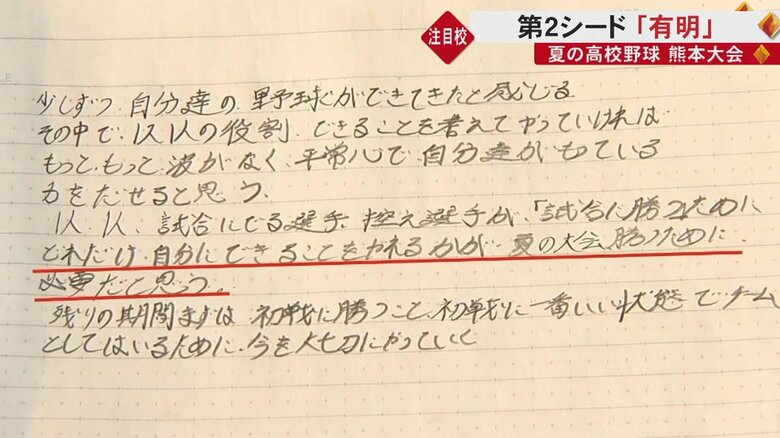 注目校
第2シード「有明」
夏の高校野球 熊本大会
少しずつ、自分達の野球ができてきたと感じる
その中で、1人1人の役割、できることを考えてやっていければ
もっと、もっと、波がなく、平常心で、自分達がもっている
力をだせると思う。
1人、1人、試合にでる選手、控え選手が、「試合に勝つ」ために、
どれだけ、自分にできることをやれるかが、夏の大会、勝つために、
必要だと思う。
残りの期間まずは、初戦に勝つこと、初戦に一番いい状態でチーム
としてはいるために、今を大切にやっていく